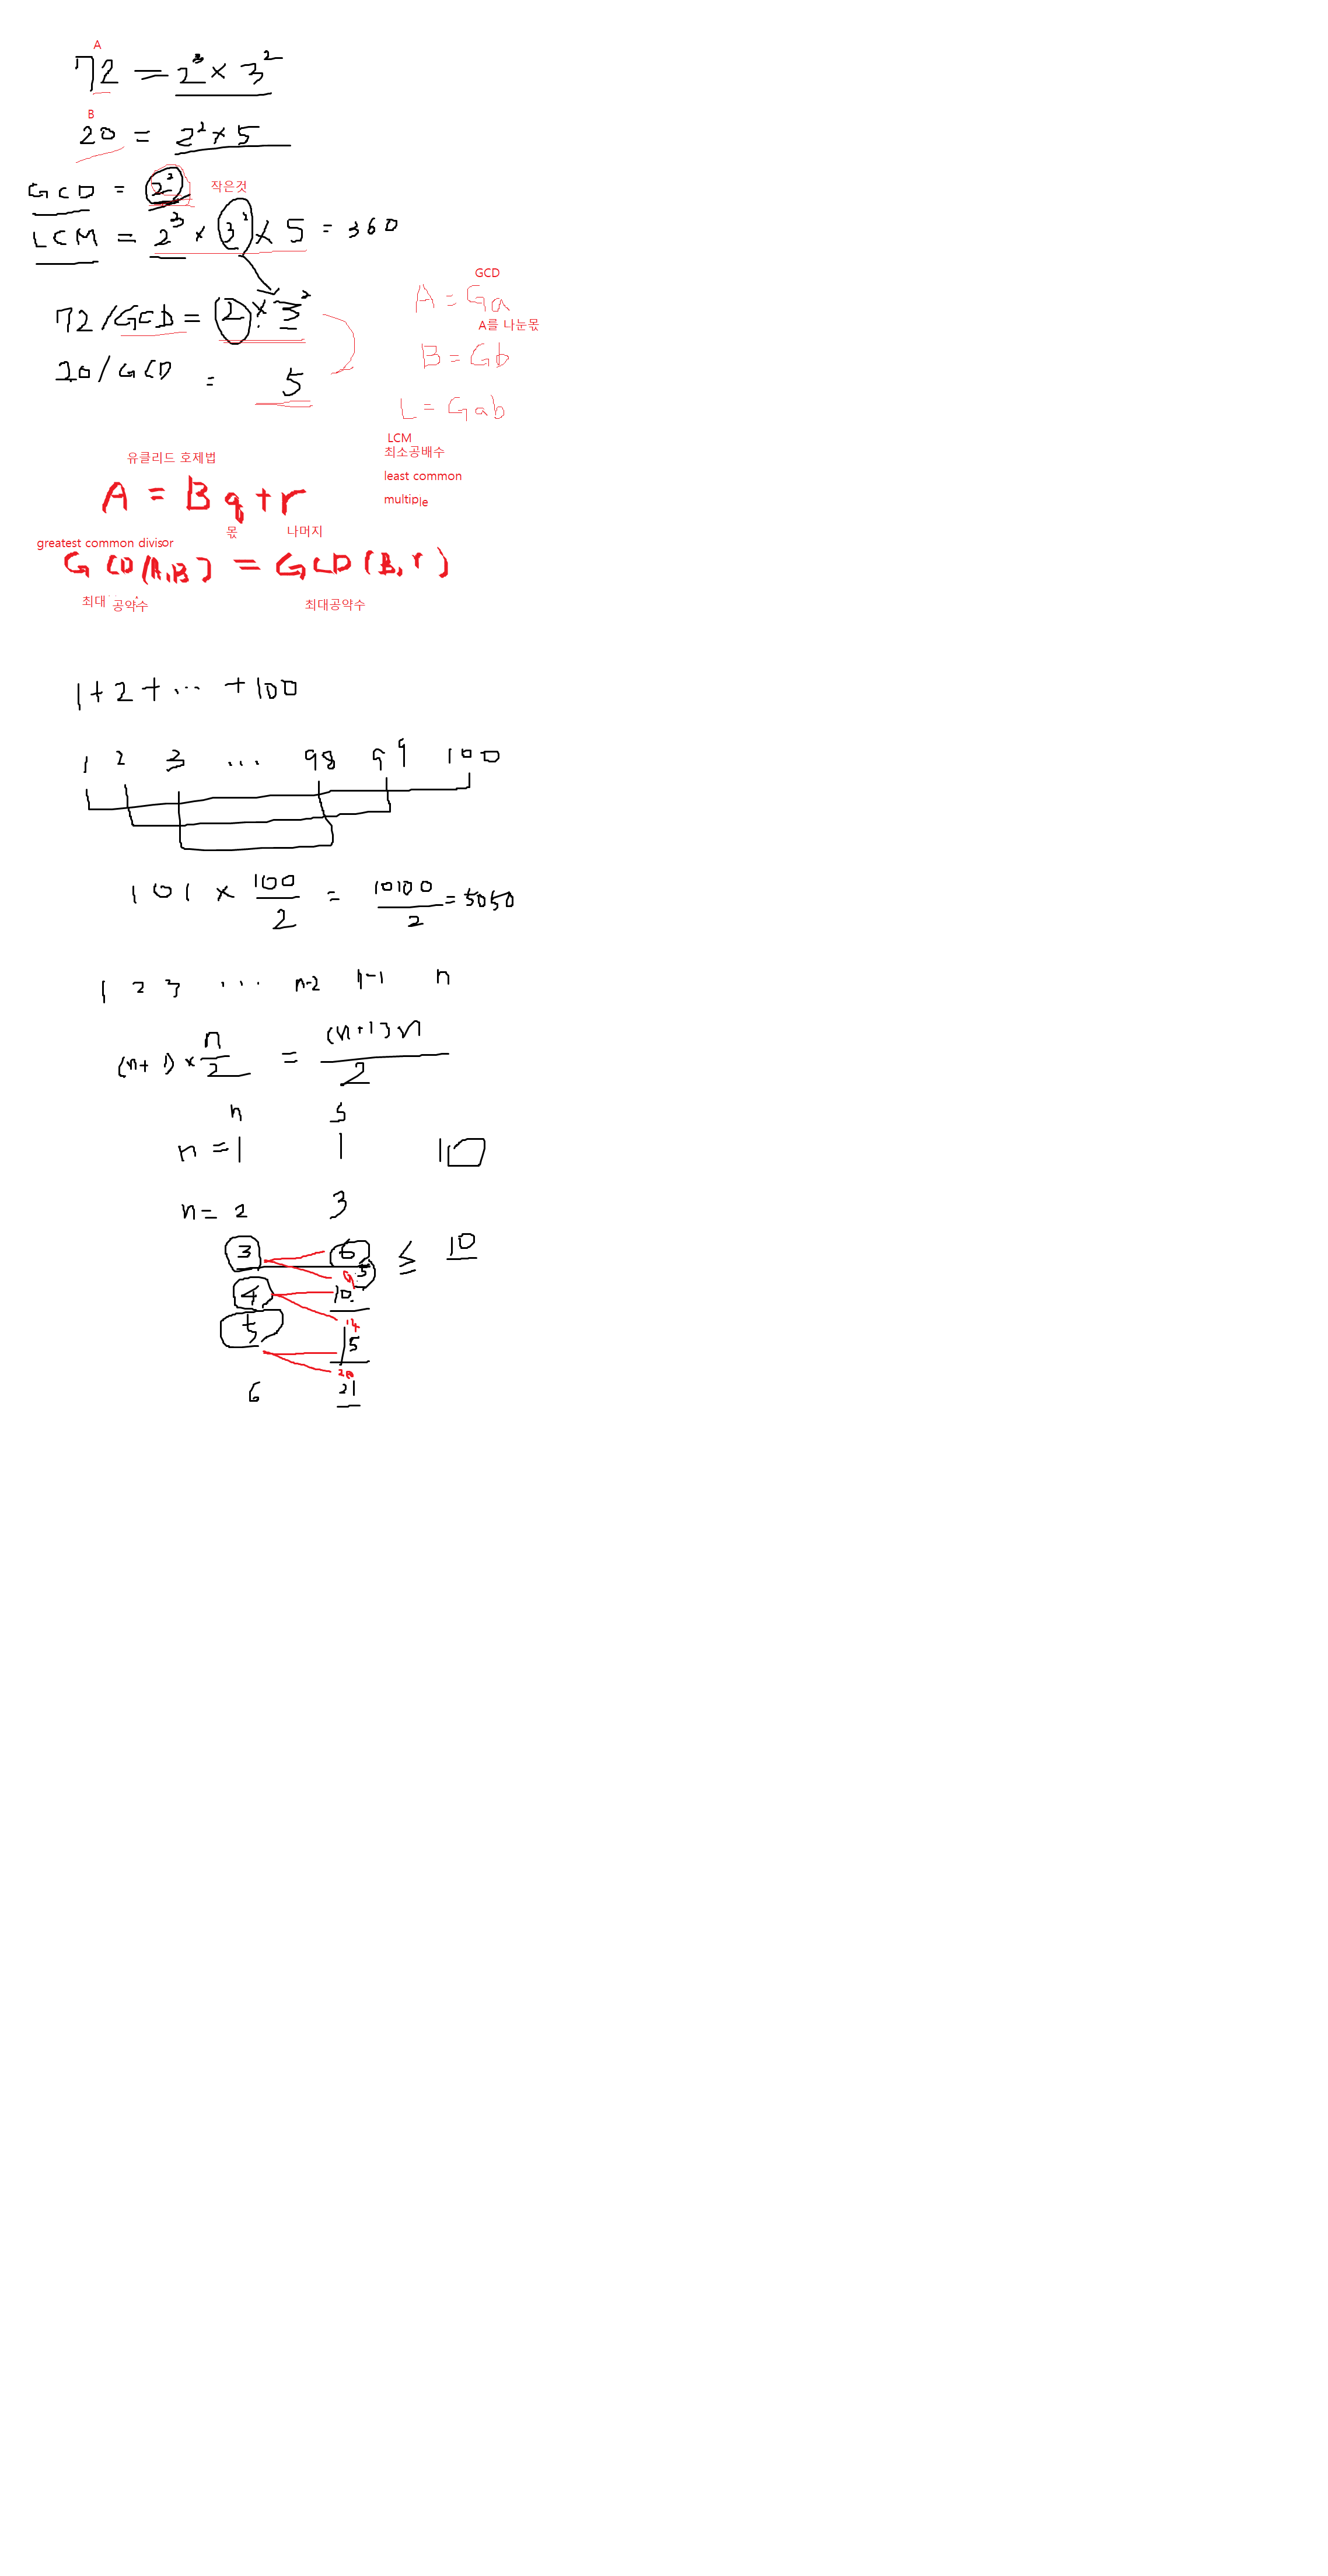 A
72 = 2³ × 3²
B
20 = 2² × 5
GCD = 2² 작은것
LCM = 2³ × 3² × 5 = 360
72/GCD = 2 × 3²
20/GCD = 5
GCD
A = Ga
A를 나눈몫
B = Gb
L = Gab
LCM
최소공배수
least common
multiple
유클리드 호제법
A = Bq + r
몫 나머지
greatest common divisor
GCD(A,B) = GCD(B,r)
최대 공약수 최대공약수
1+2+ ... +100
1 2 3 ... 98 99 100
101 × 100/2 = 10100/2 = 5050
1 2 3 ... n-2 n-1 n
(n+1) × n/2 = (n+1)n/2
n S
n = 1 1 10
n = 2 3
3 6 ≤ 10
9 5
4 10
14
5 15
20
6 21